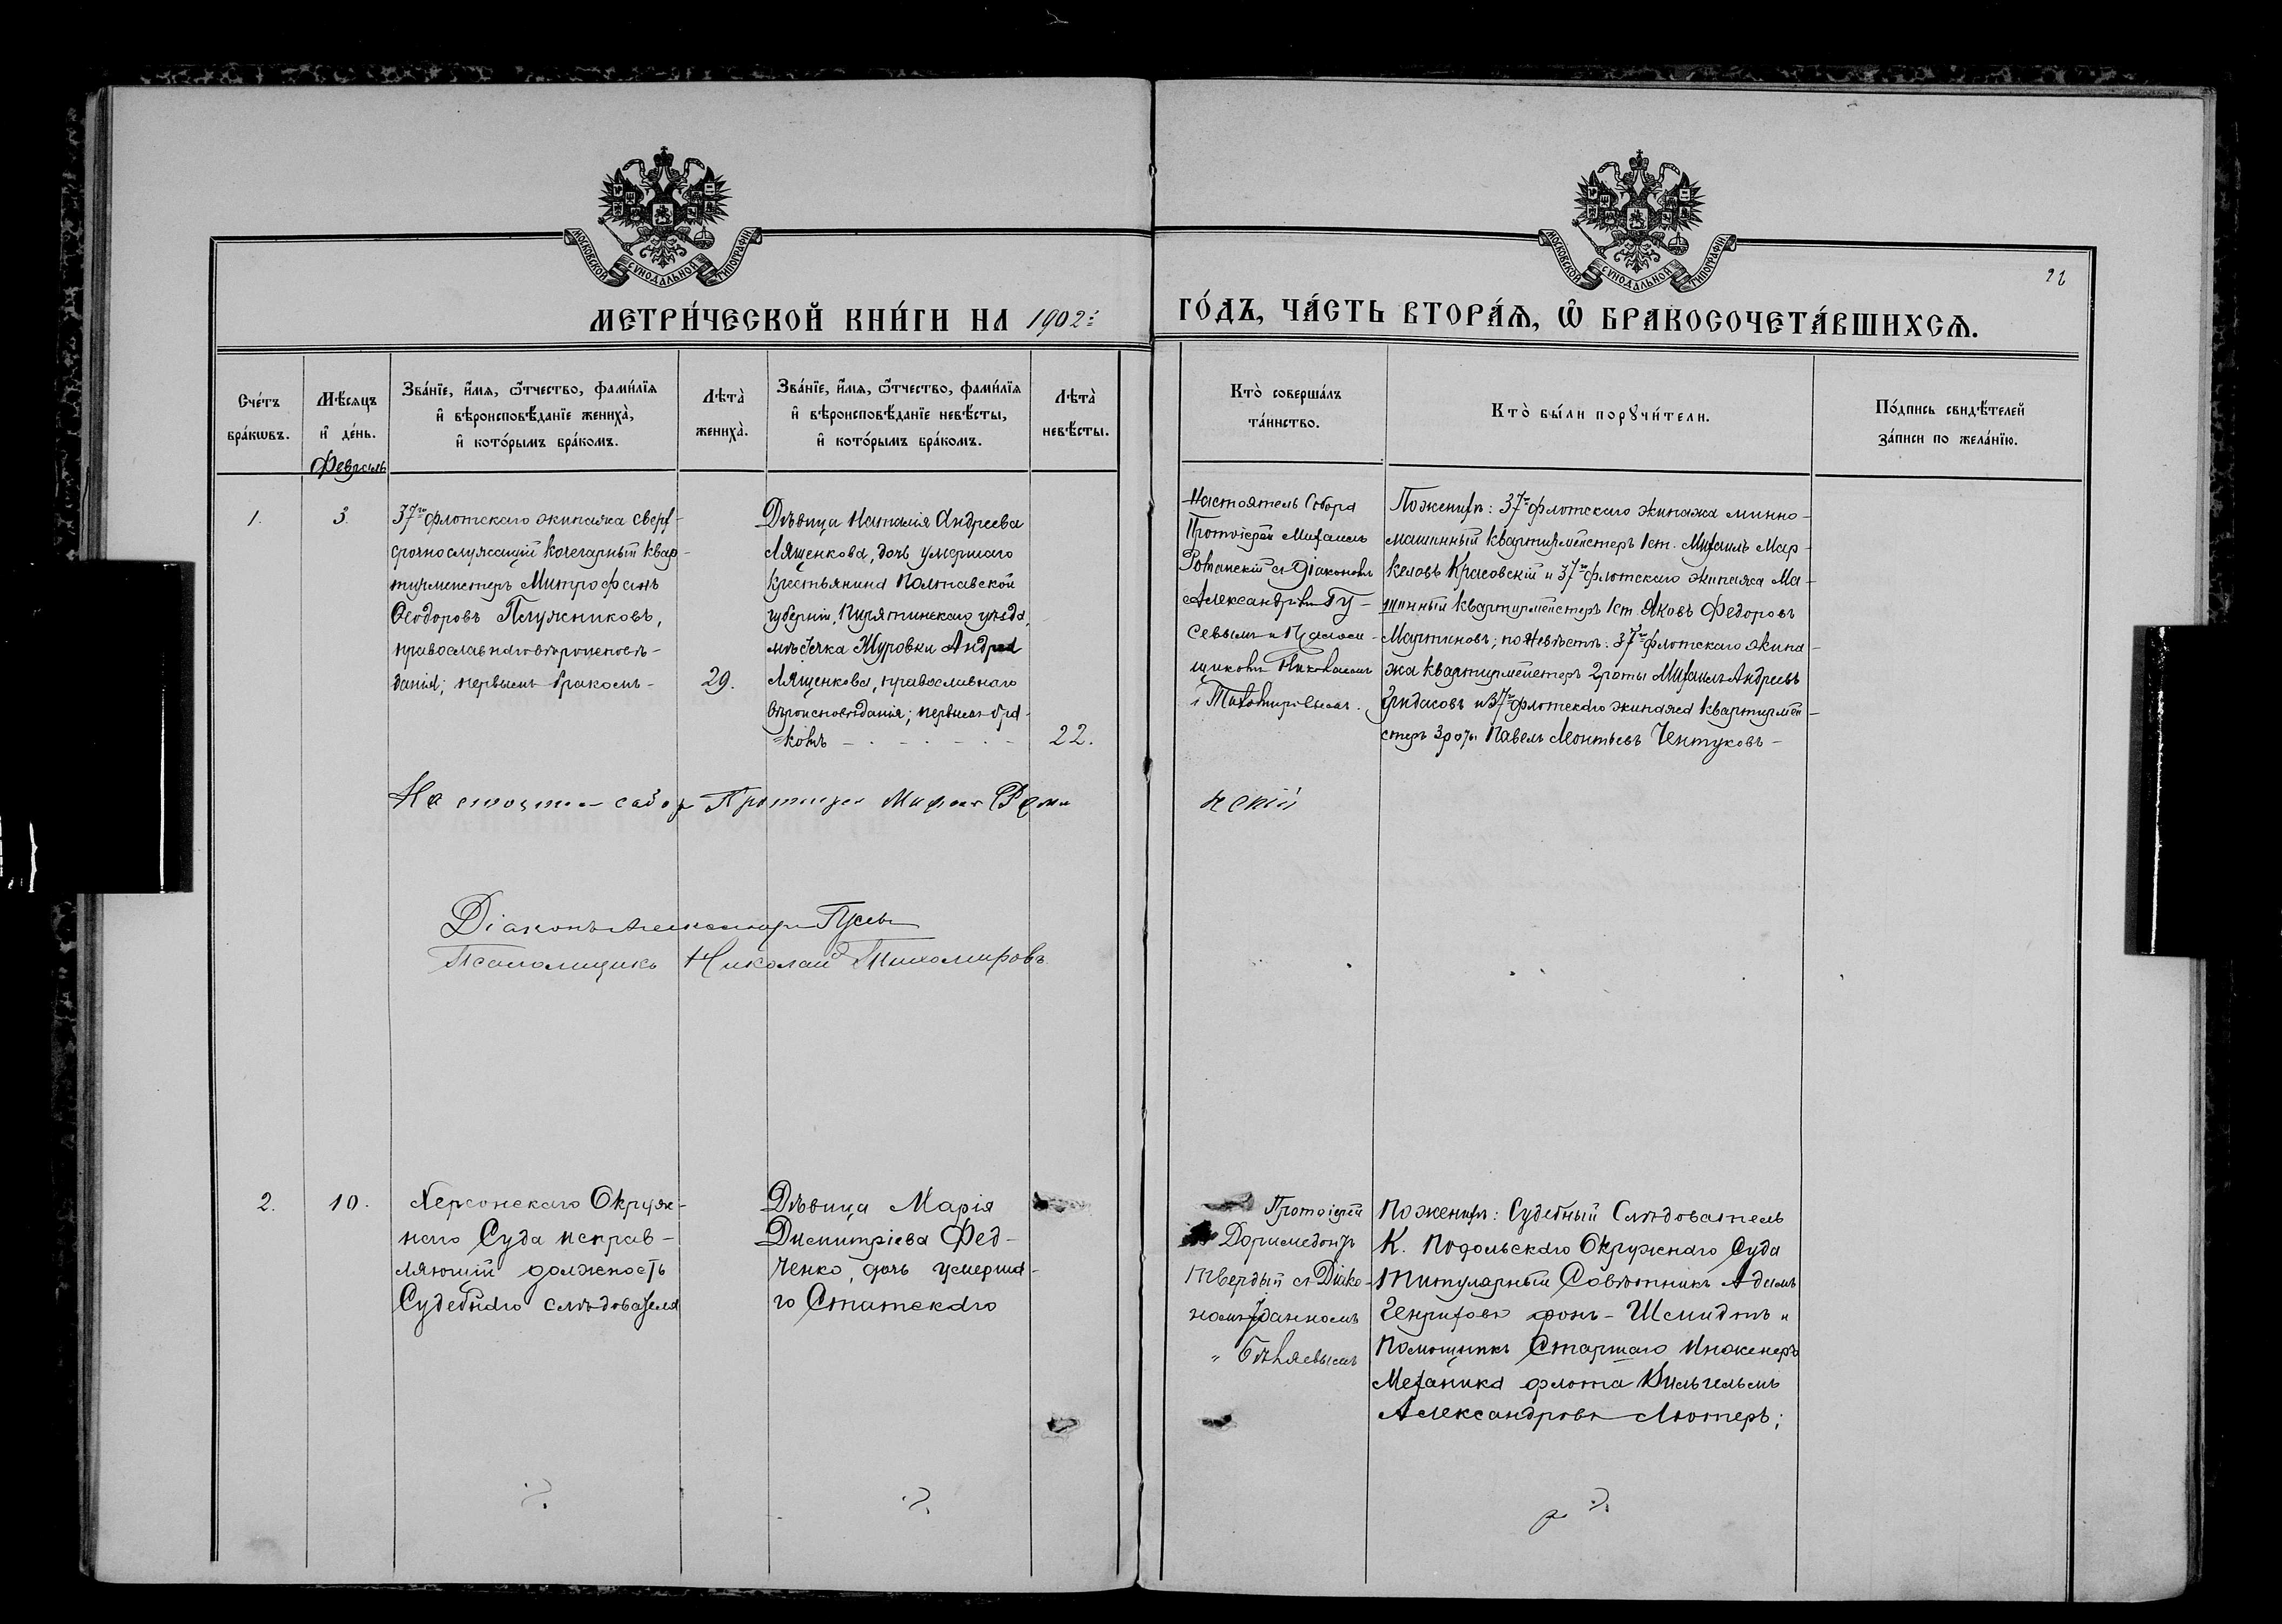 МОСКОВСКОЙ СѴНОДАЛЬНОЙ ТИПОГРАФІИ.
МОСКОВСКОЙ СѴНОДАЛЬНОЙ ТИПОГРАФІИ.
22
МЕТРИ́ЧЕСКОЙ КНИ́ГИ НА 1902й
ГО́ДЪ, ЧА́СТЬ ВТОРА́Ѧ, Ѽ БРАКОСОЧЕТА́ВШИХСѦ.
Сче́тъ
бра́кѡвъ.
Мѣ́сяцъ
и҆ де́нь.
Февраль
Зва́нїе, и҆́мя, ѻ҆́тчество, фами́лїя
и҆ вѣроисповѣ́данїе жениха̀,
и҆ кото́рымъ бра́комъ.
Лѣта̀
жениха̀.
Зва́нїе, и҆́мя, ѻ҆́тчество, фами́лїя
и҆ вѣроисповѣ́данїе невѣ́сты,
и҆ кото́рымъ бра́комъ.
Лѣта̀
невѣ́сты.
Кто̀ соверша́лъ
та́инство.
Кто̀ бы́ли порꙋчи́тели.
По́дпись свидѣ́телей
за́писи по жела́нїю.
1.
3.
37го флотскаго экипажа сверх-
срочнослужащій кочегарный квар-
тирмейстеръ Митрофанъ
Ѳеодоровъ Плужниковъ,
православнаго вѣроисповѣ-
данія; первымъ бракомъ-
29.
Дѣвица Наталія Андреева
Лященкова, дочь умершаго
крестьянина Полтавской
губерніи, Пирятинскаго уѣзда,
мѣстечка Журовки Андрея
Лященкова, православнаго
вѣроисповѣданія; первымъ бра-
=комъ
22.
Настоятель Собора
Протоіерей Михаилъ
Романскій съ Діакономъ
Александромъ Гу-
севымъ и Псалом-
щикомъ Николаемъ
Тихомировымъ.
По женихѣ: 37го флотскаго экипажа минно-
машинный квартирмейстеръ 1 ст. Михаилъ Мар-
келовъ Красовскій и 37го флотскаго экипажа Ма-
шинный квартирмейстеръ 1 ст. Яковъ Федоровъ
Мартиновъ; по невѣстѣ: 37го флотскаго экипа-
жа квартирмейстеръ 2 роты Михаилъ Андреевъ
Гридасовъ и 37го флотскаго экипажа квартирмей-
стеръ 3 роты Павелъ Леонтьевъ Чентуковъ-
Настоятель собора Протоіерей Михаилъ Рома
нскій
Діаконъ Александръ Гусевъ
Псаломщикъ Николай Тихомировъ
2.
10.
Херсонскаго Окруж-
наго Суда исправ-
ляющій должность
Судебнаго слѣдователя
Дѣвица Марія
Димитріева Фед-
ченко, дочь умерша-
го Статскаго
Протоіерей
Доримедонтъ
Твердый съ Діако-
номъ Іоанномъ
Бѣляевымъ
По женихѣ: Судебный Слѣдователь
К. Подольскаго Окружнаго Суда
Титулярный Совѣтникъ Адамъ
Генриховъ фонъ-Шмидтъ и
Помощникъ Старшаго Инженеръ
Механика флота Вильгельмъ
Александровъ Лютеръ;